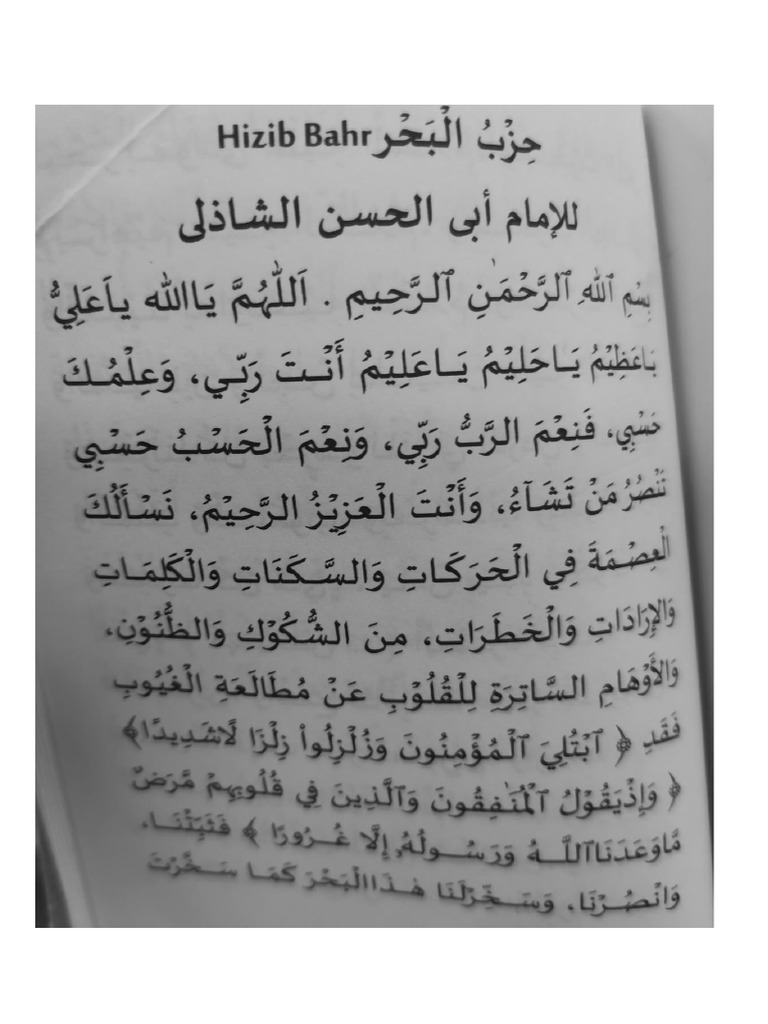 حِزْبُ الْبَحْر Hizib Bahr
للإمام أبى الحسن الشاذلى
بِسْمِ ٱللهِ ٱلرَّحْمَـٰنِ ٱلرَّحِيمِ . اَللّٰهُمَّ يَاالله ياَعَلِيُّ
يَاعَظِيْمُ يَـاحَلِيْمُ يَـاعَلِيْمُ أَنْـتَ رَبِّـي، وَعِلْمُـكَ
حَسْبِي، فَنِعْمَ الرَّبُّ رَبِّي، وَنِعْمَ الْحَسْبُ حَسْبِي
تَنْصُرُ مَنْ تَشَآءُ، وَأَنْتَ الْعَزِيْزُ الرَّحِيْمُ، نَسْـأَلُكَ
الْعِصْـمَةَ فِي الْحَرَكَـاتِ وَالسَّـكَنَاتِ وَالْكَلِمَـاتِ
وَالإِرَادَاتِ وَالْخَطَرَاتِ، مِنَ الشُّكُوْكِ وَالظُّنُوْنِ،
وَالأَوْهَامِ السَّاتِرَةِ لِلْقُلُوْبِ عَنْ مُطَالَعَةِ الْغُيُوبِ
فَقَدِ ﴿ ٱبْتُلِيَ ٱلْمُؤْمِنُونَ وَزُلْزِلُواْ زِلْزَالًا شَدِيدًا﴾
﴿ وَإِذْ يَقُوْلُ ٱلْمُنَـٰفِقُونَ وَٱلَّذِينَ فِي قُلُوبِهِمْ مَّرَضٌ
مَّاوَعَدَنَا ٱللَّـهُ وَرَسُـولُهُۥ إِلَّا غُـرُورًا ﴾ فَثَبِّتْنَـا،
وَانْصُـرْنَا، وَسَـخِّرْ لَنَا هٰـذَا الْبَحْرَ كَمَـا سَـخَّرْتَ